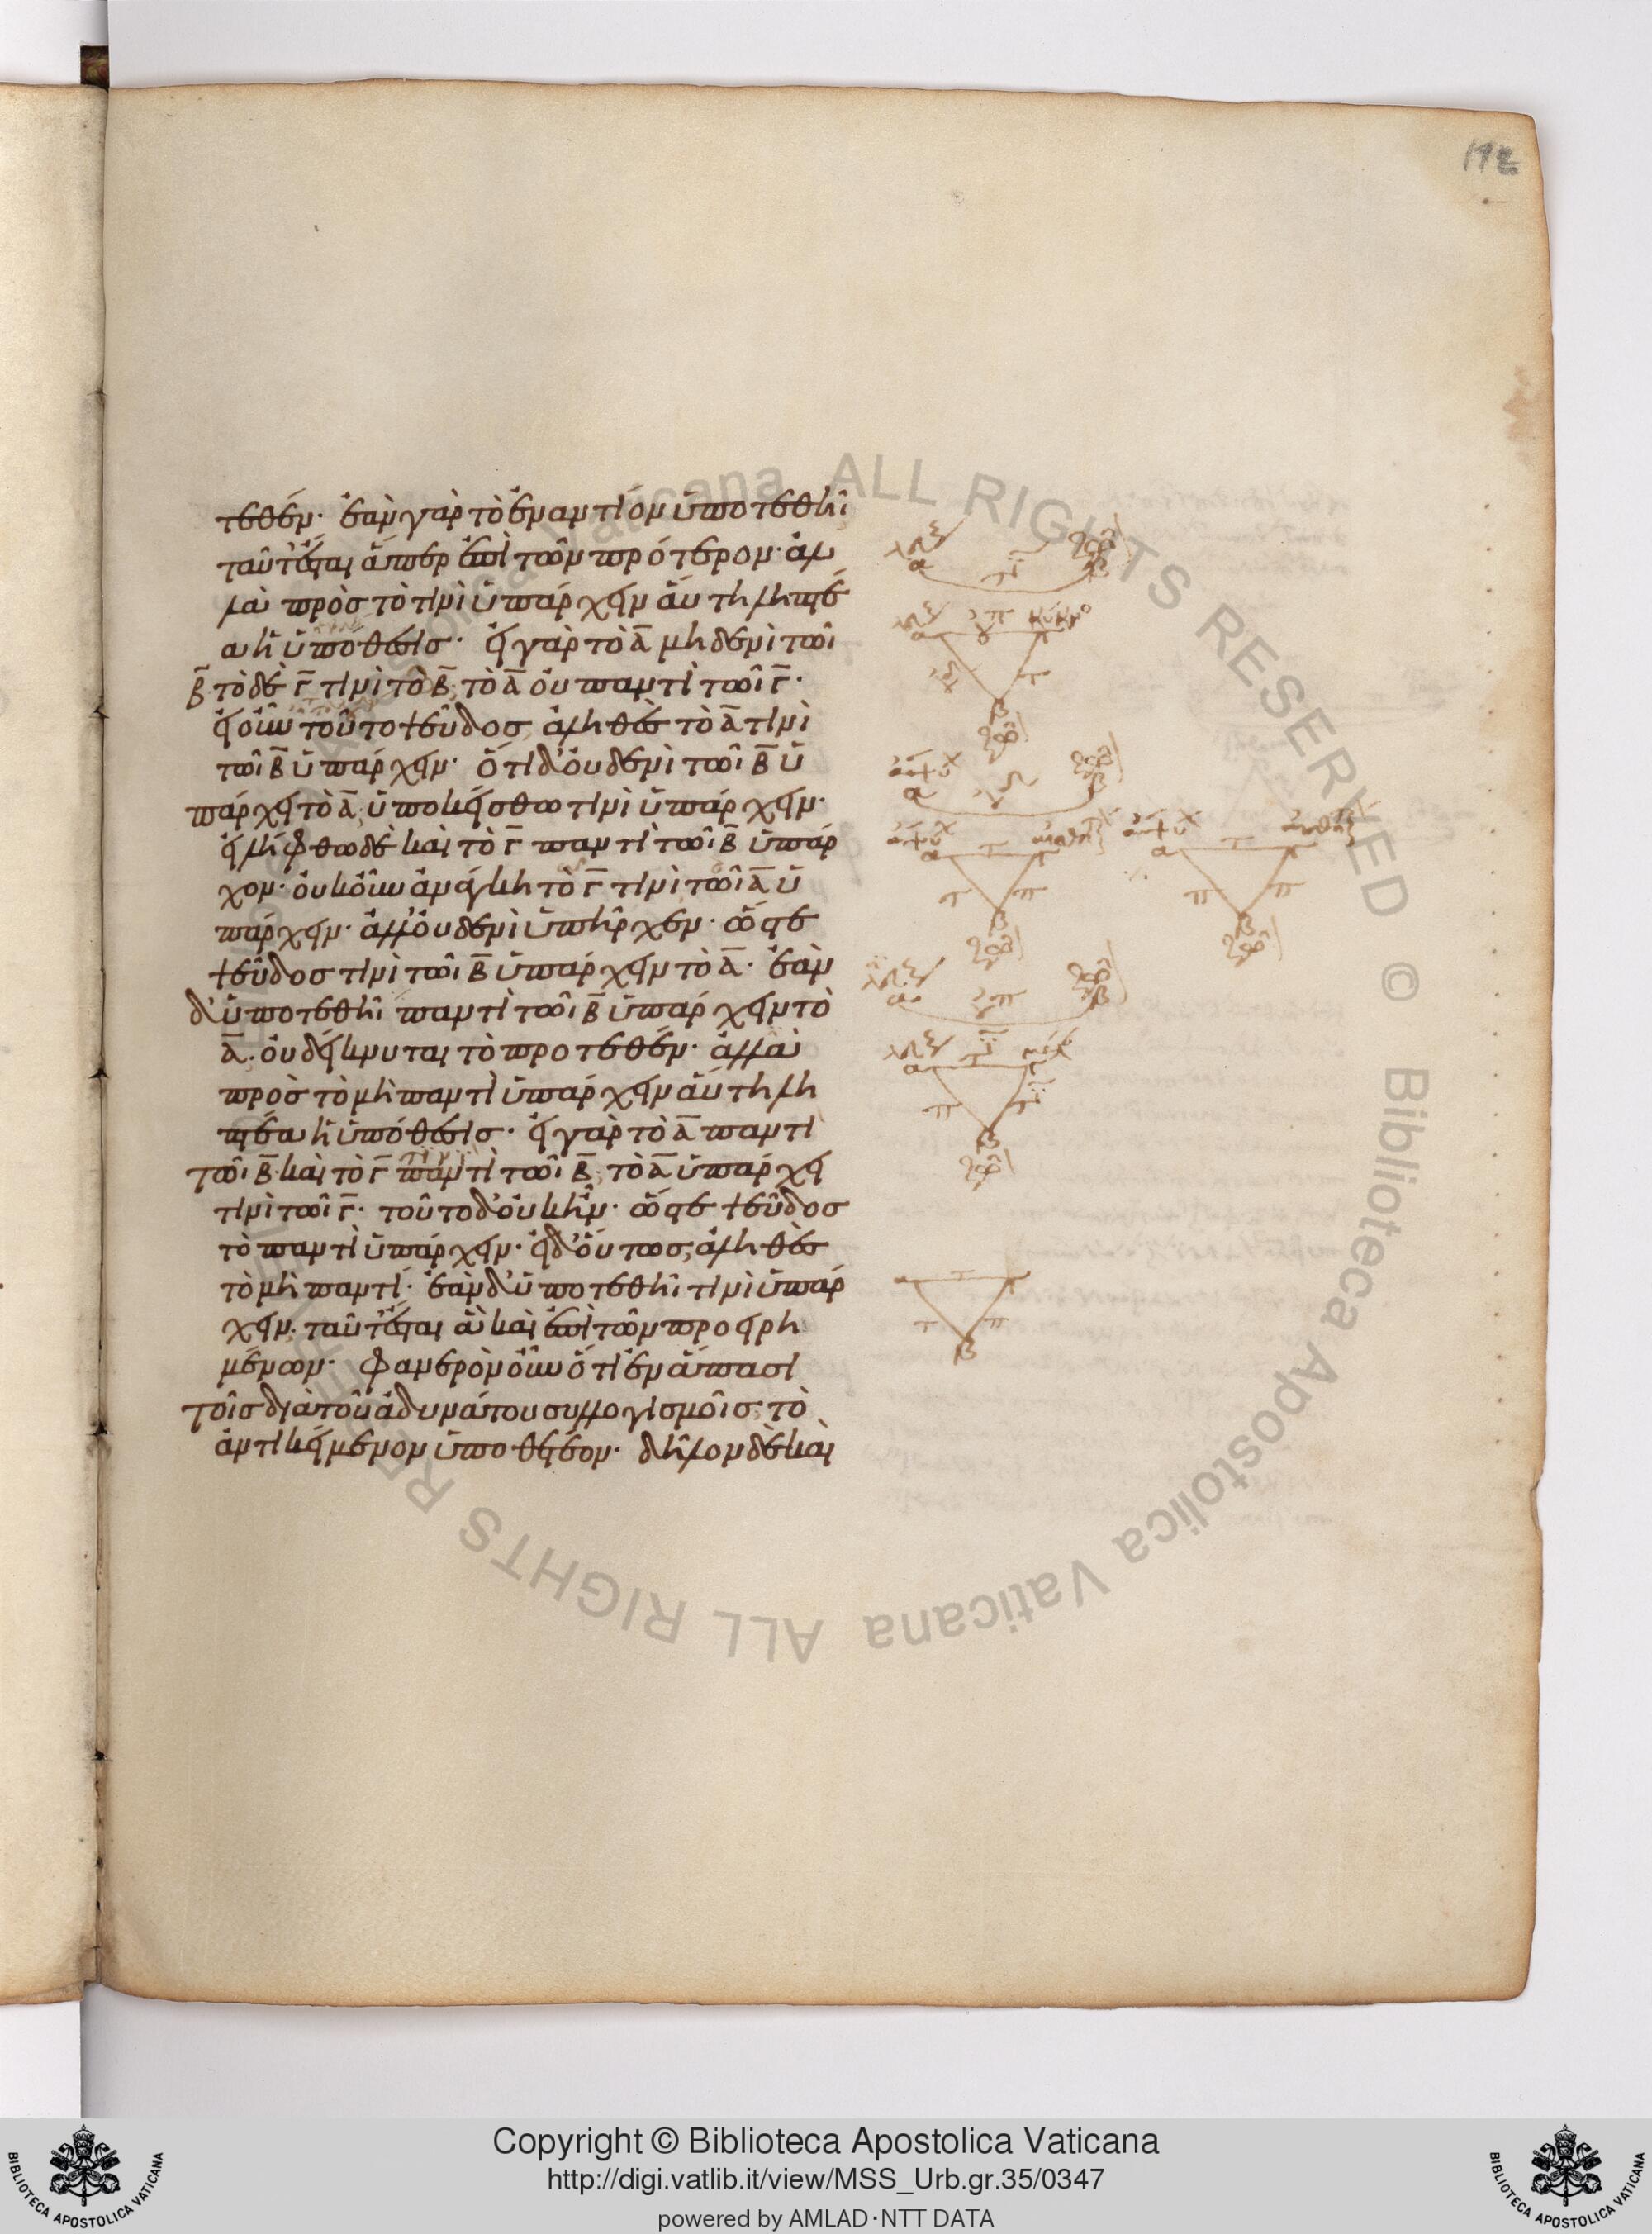 172
τεθέν· ἐὰν γὰρ τὸ ἐναντίον ὑποτεθῆι
ταῦτ' ἔσται ἅπερ ἐπὶ τῶν πρότερον· ἀλ
λὰ πρὸς τὸ τινὶ ὑπάρχειν αὕτη ληπτέ
α ἡ ὑπόθεσις· εἰ γὰρ τὸ Α μηδενὶ τῶι
Β τὸ δὲ Γ τινὶ τῶ Β, τὸ Α οὐ παντὶ τῶι Γ·
εἰ οὖν τοῦτο ψεῦδος, ἀληθὲς τὸ Α τινὶ
τῶι Β ὑπάρχειν· ὅτι δ' οὐδενὶ τῶι Β ὑ
πάρχει τὸ Α, ὑποκείσθω τινὶ ὑπάρχειν·
εἰλήφθω δὲ καὶ τὸ Γ παντὶ τῶι Β ὑπάρ
χον· οὐκοῦν ἀνάγκη τὸ Γ τινὶ τῶι Α ὑ
πάρχειν· ἀλλ' οὐδενὶ ὑπῆρχεν· ὥστε
ψεῦδος τινὶ τῶι Β ὑπάρχειν τὸ Α· ἐὰν
δ' ὑποτεθῆι παντὶ τῶι Β ὑπάρχειν τὸ
Α· οὐ δείκνυται τὸ προτεθέν· ἀλλὰ
πρὸς τὸ μὴ παντὶ ὑπάρχειν αὕτη λη
πτέα ἡ ὑπόθεσις· εἰ γὰρ τὸ Α παντὶ
τῶι Β· καὶ τὸ Γ παντὶ τῶι Β, τὸ Α ὑπάρχει
τινὶ τῶι Γ· τοῦτο δ' οὐκ ἦν· ὥστε ψεῦδος
τὸ παντὶ ὑπάρχειν· εἰ δ' οὕτως, ἀληθὲς
τὸ μὴ παντί· ἐὰν δ' ὑποτεθῆι τινὶ ὑπάρ
χειν· ταῦτ' ἔσται ἃ καὶ ἐπὶ τῶν προειρη
μένων· φανερὸν οὖν ὅτι ἐν ἅπασι
τοῖς διὰ τοῦ ἀδυνάτου συλλογισμοῖς, τὸ
ἀντικείμενον ὑποθετέον· δῆλον δὲ καὶ
Copyright © Biblioteca Apostolica Vaticana
http://digi.vatlib.it/view/MSS_Urb.gr.35/0347
powered by AMLAD·NTT DATA